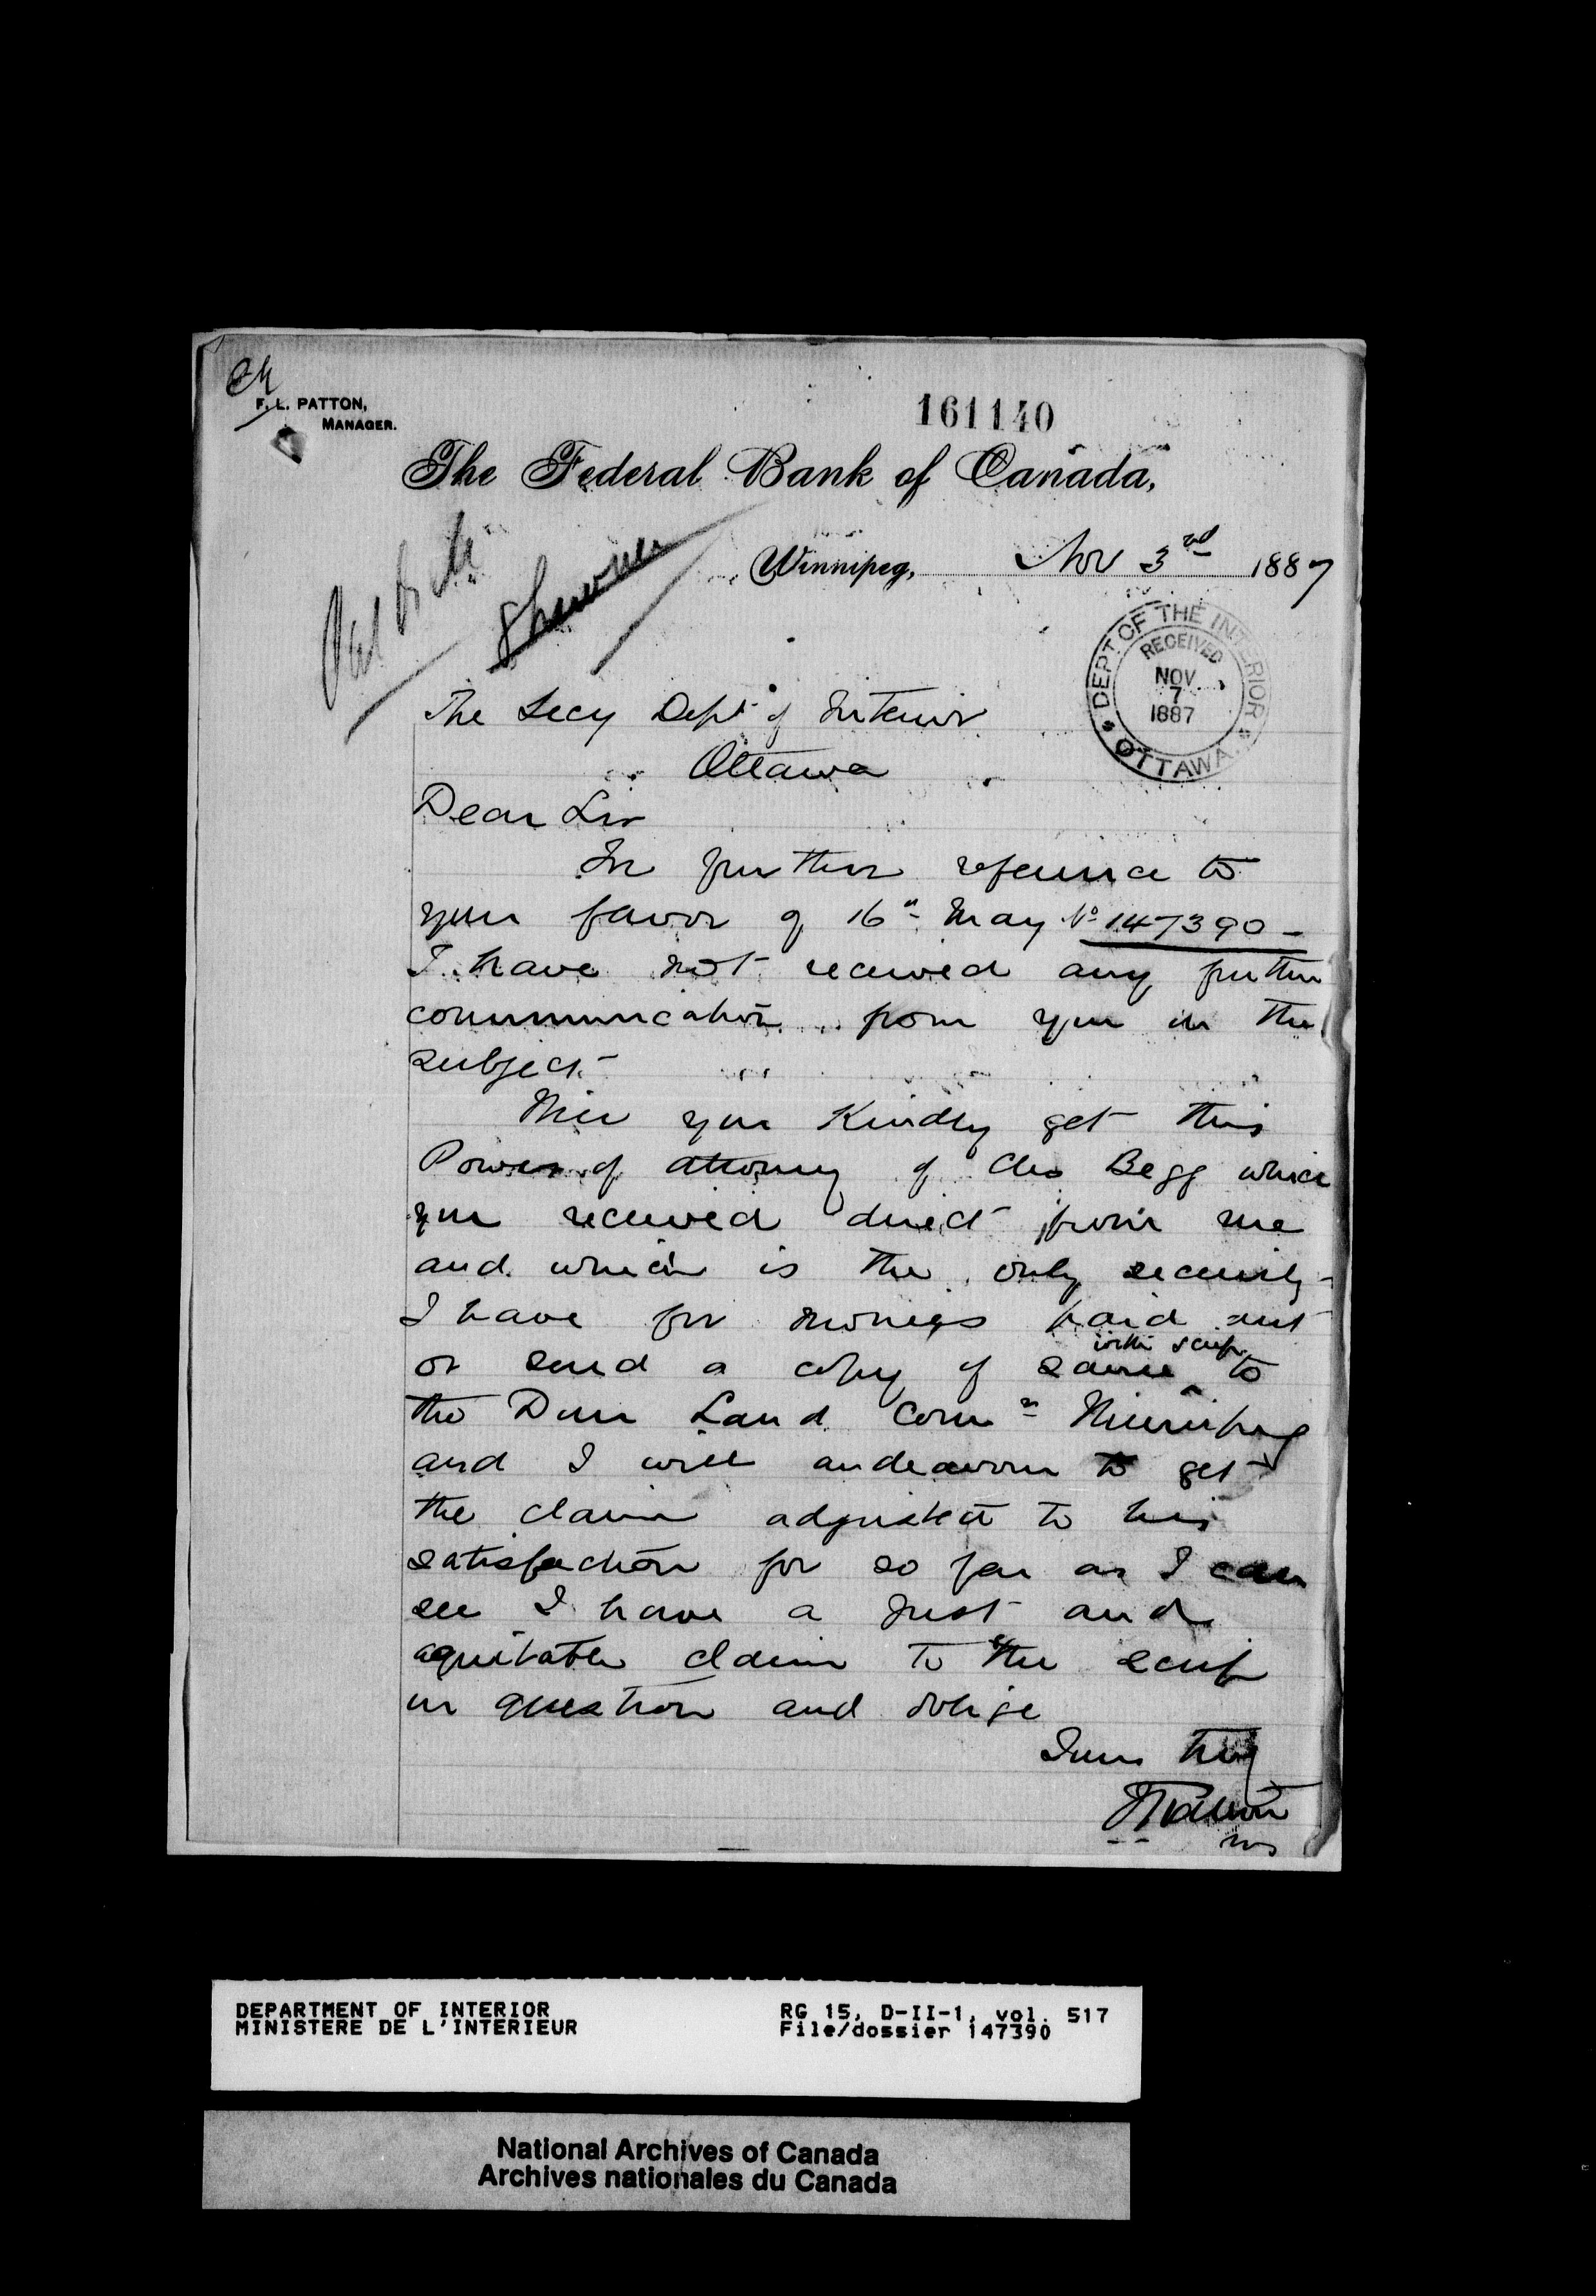 F. L. PATTON,
MANAGER.
161140
The Federal Bank of Canada,
Winnipeg, Nov 3rd 1887
DEPT. OF THE INTERIOR
RECEIVED
NOV
7
1887
OTTAWA
The Secy Dept of Interior
Ottawa
Dear Sir
In further reference to
your favor of 16th May No 147390 -
I have not received any further
communication from you on the
subject
Will you Kindly get this
Power of attorney of Chs Begg which
you received direct from me
and which is the only security
I have for moneys paid out
or send a copy of same with scrip to
the Dom Land Comn Winnipeg
and I will endeavour to get
the claim adjusted to his
satisfaction for so far as I can
see I have a just and
equitable claim to the scrip
in question and oblige
Yours truly
F L Patton
DEPARTMENT OF INTERIOR
MINISTERE DE L'INTERIEUR
RG 15, D-II-1, vol. 517
File/dossier 147390
National Archives of Canada
Archives nationales du Canada